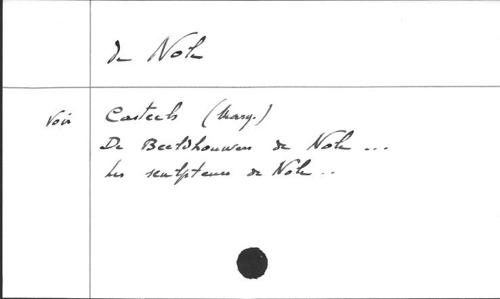 de Nole
Voir Casteels (Marg.)
De Beeldhouwers de Nole ...
Les sculpteurs de Nole ..